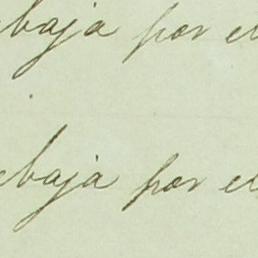 ebaja por el
ebaja por el